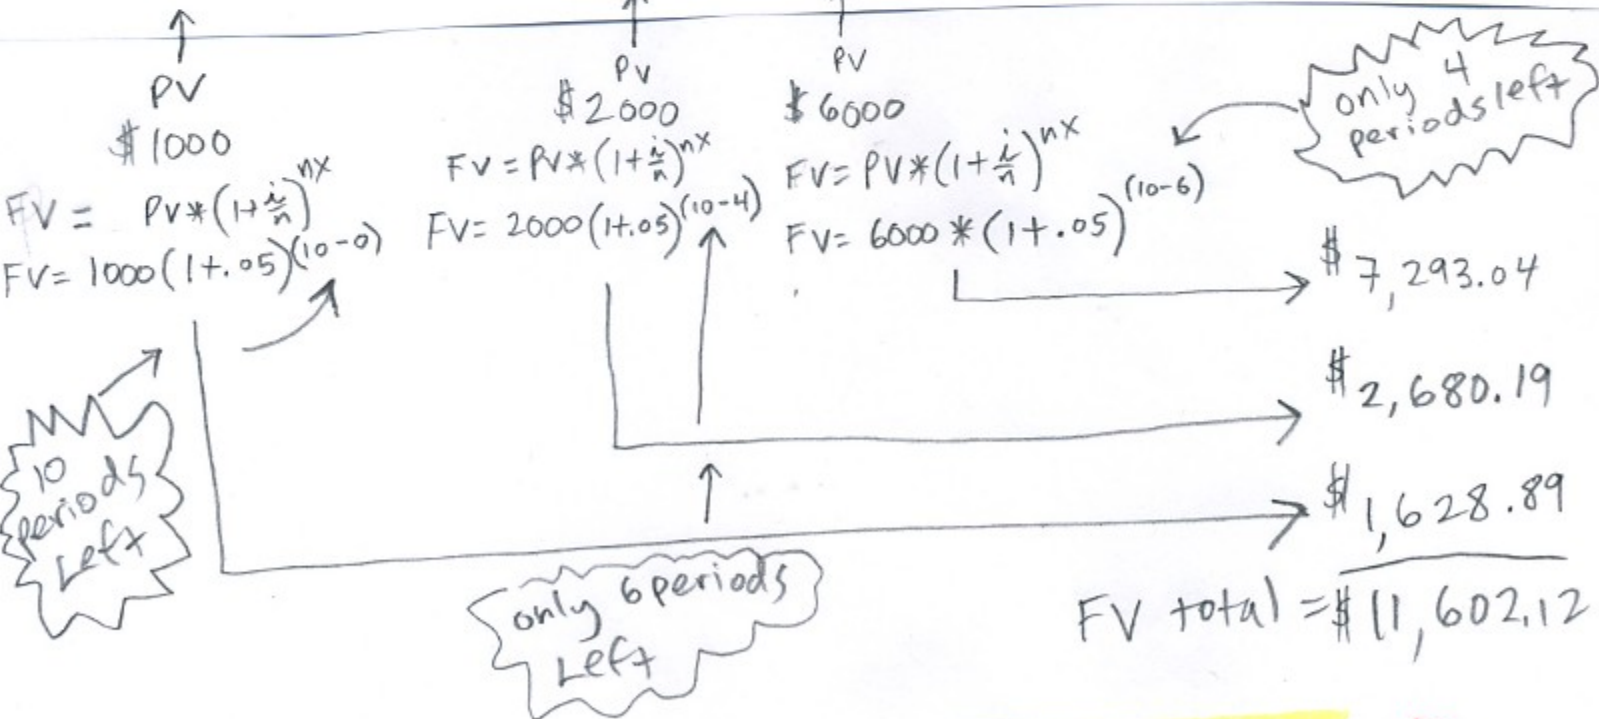 PV
$1000
FV = PV*(1+i/n)^nx
FV= 1000(1+.05)^(10-0)
10
periods
Left
PV
$2000
FV = PV*(1+i/n)^nx
FV= 2000(1+.05)^(10-4)
only 6 periods
Left
PV
$6000
FV= PV*(1+i/n)^nx
FV= 6000*(1+.05)^(10-6)
only 4
periods left
$7,293.04
$2,680.19
$1,628.89
FV total =$11,602.12